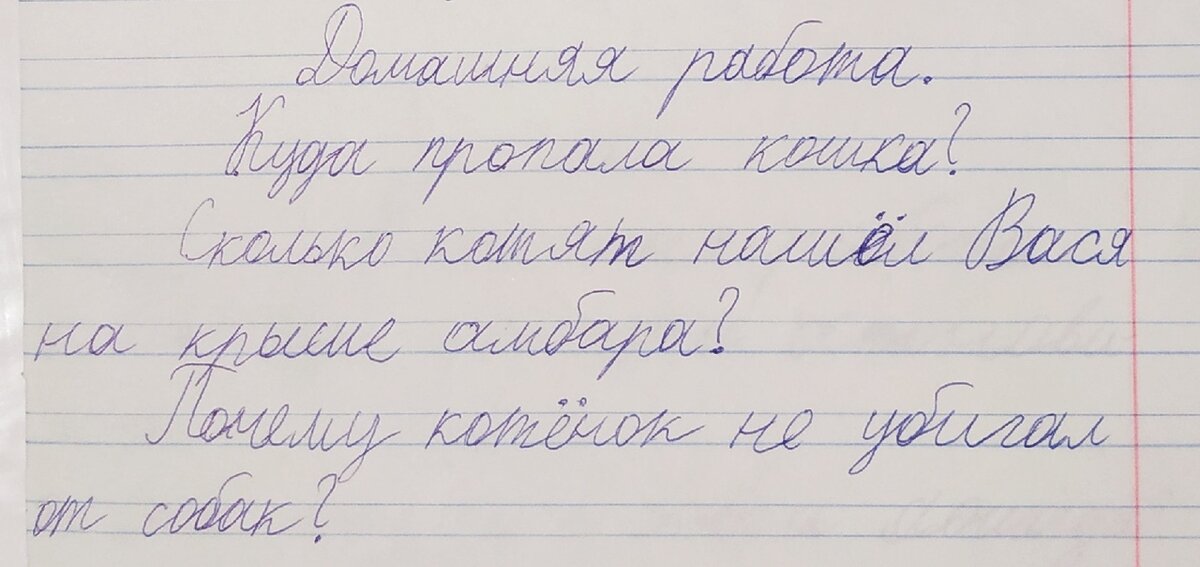 Домашняя работа.
Куда пропала кошка?
Сколько котят нашёл Вася
на крыше амбара?
Почему котёнок не убигал
от собак?